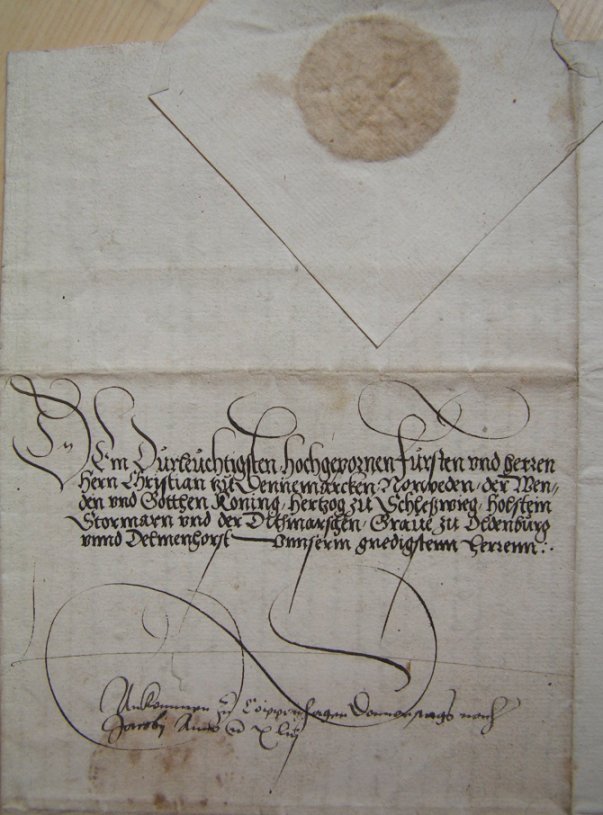 Dem Durleuchtigsten hochgepornen Fursten vnd Herren
Hern Christian zu Dennemarcken Norweden, der Wen-
den vnd Gotthen Koning, Hertzog zu Schleßwieg, Holstein
Stormarn vnd der Dithmarschen, Graue zu Oldenburg
vnnd Delmenhorst Vnnserm gnedigstenn Herrenn:.
Ankommen Coppenhagen Donnerstags nach
Jacobi Anno